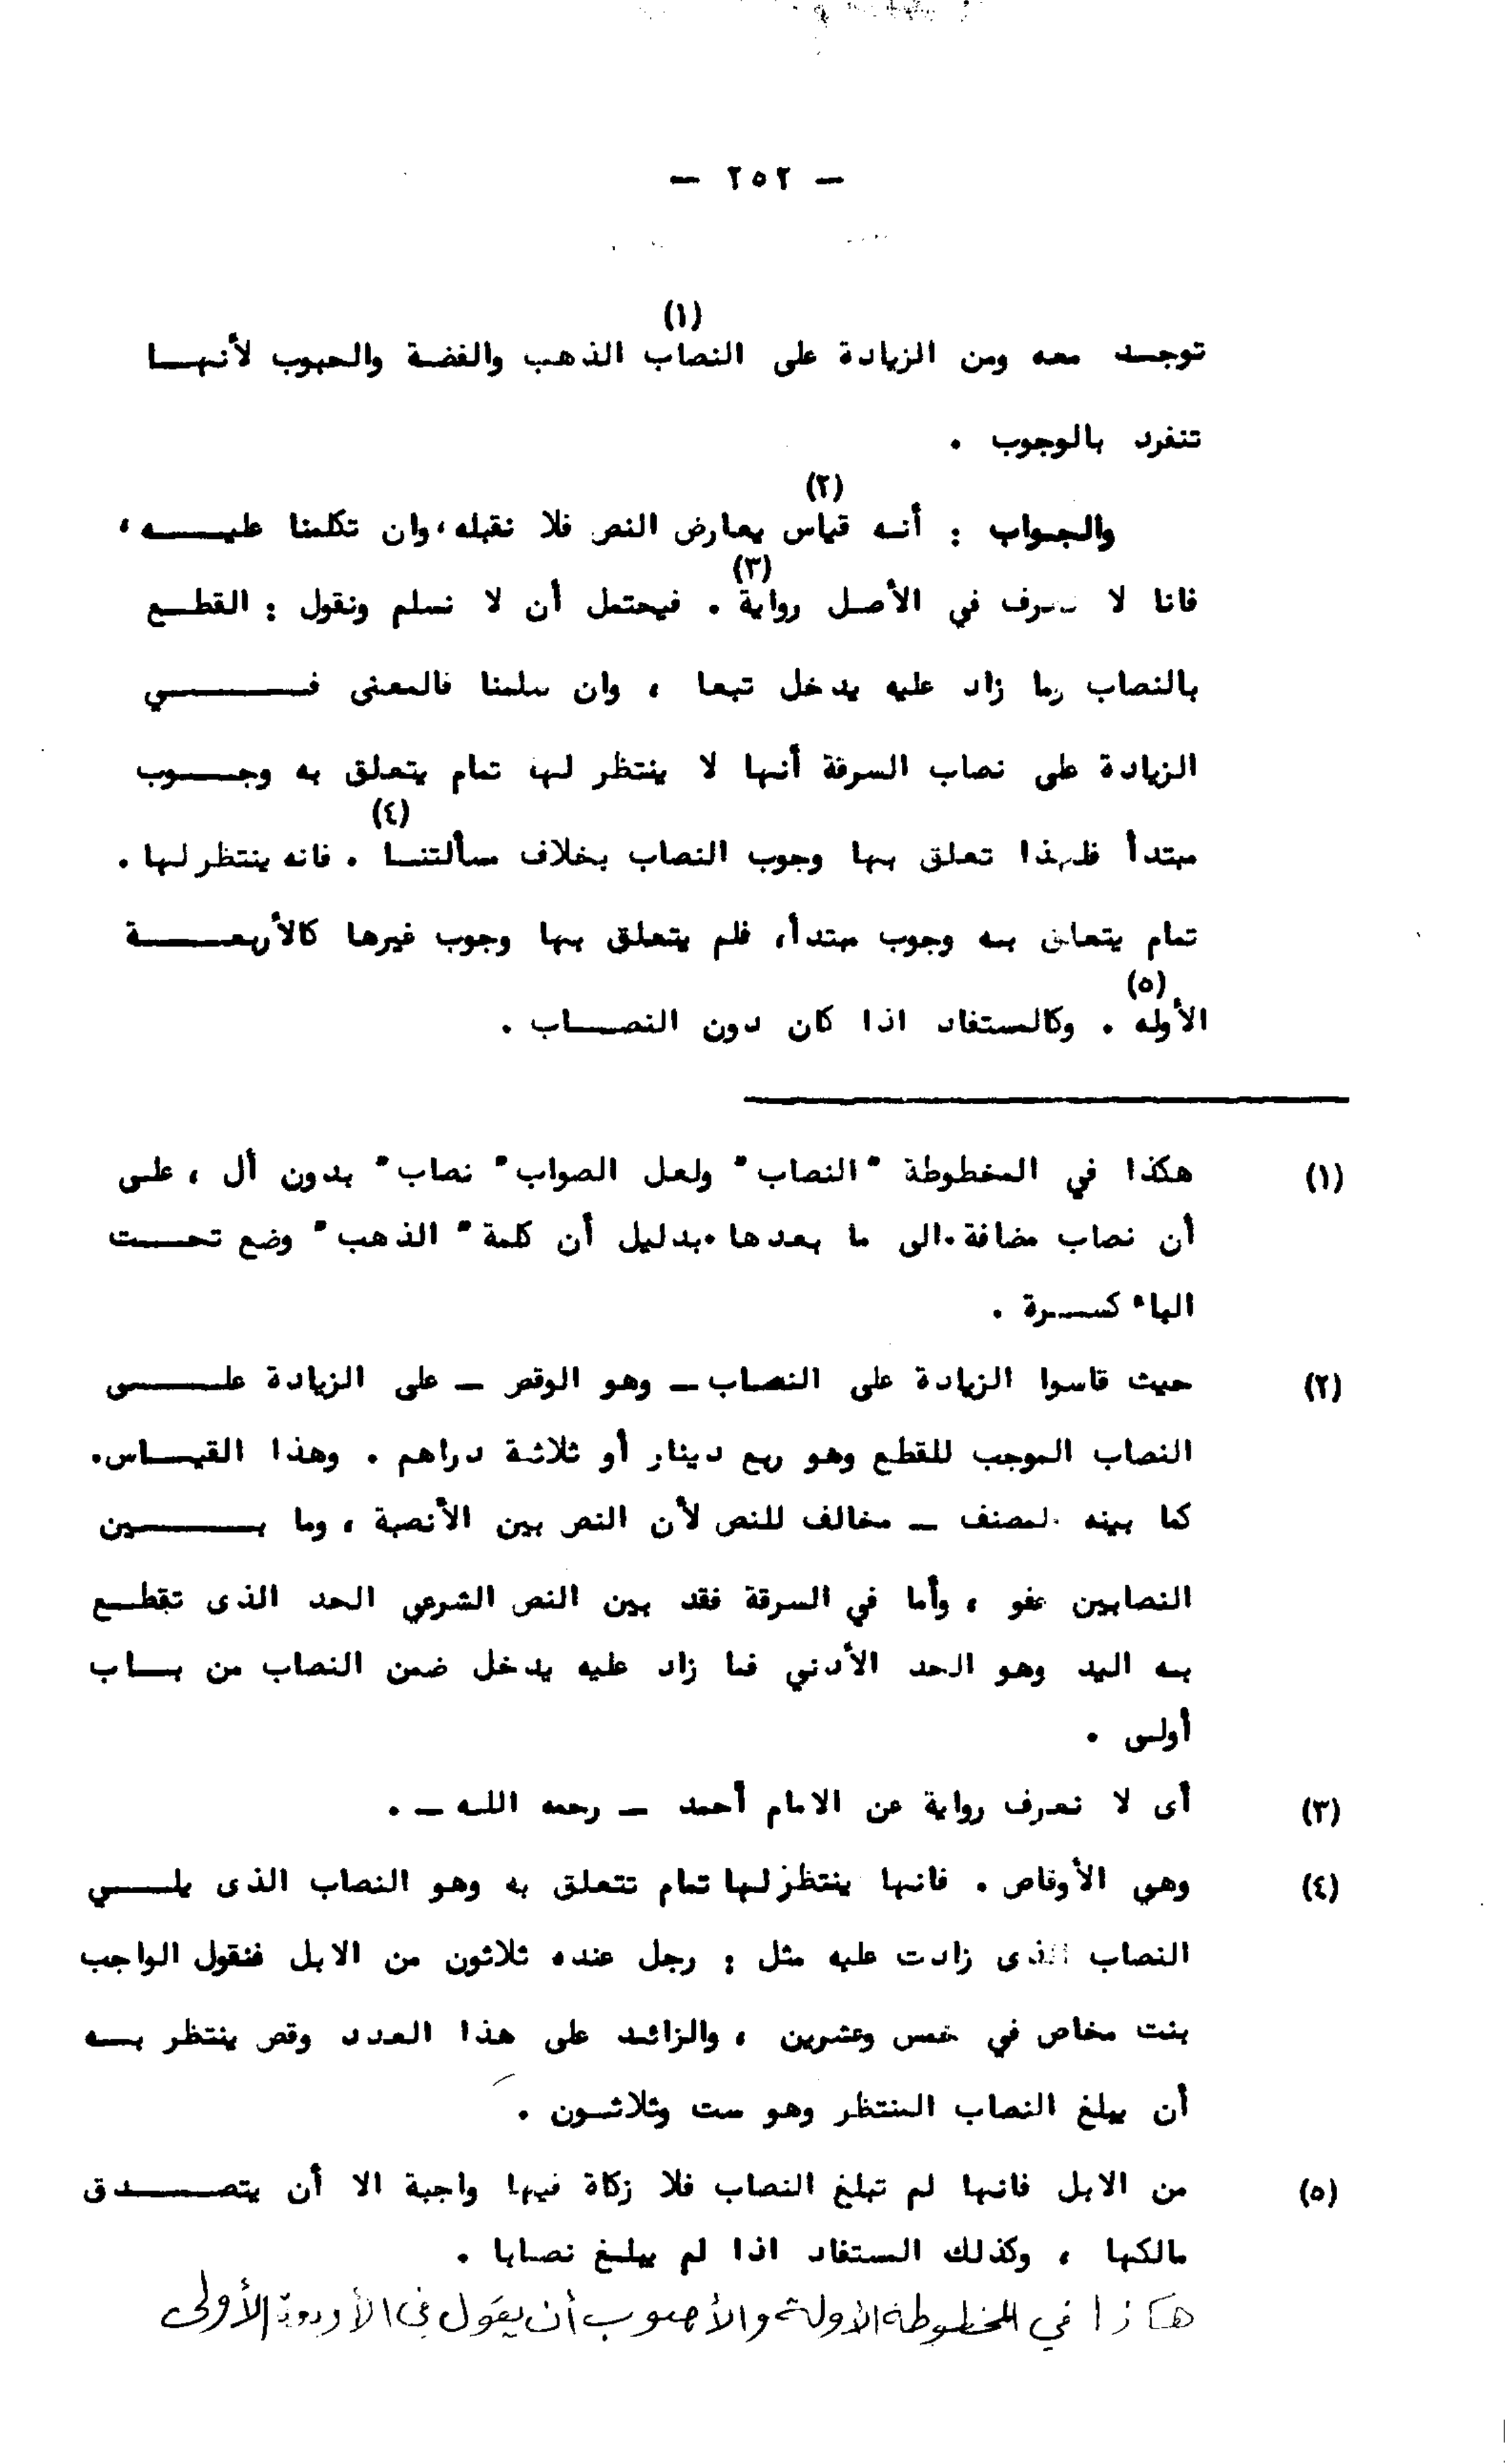 — ٢٥٢ —
(١)
توجد معه ومن الزيادة على النصاب الذهب والفضة والحبوب لأنهـا
تنفرد بالوجوب .
(٢)
والجواب : أنه قياس يعارض النص فلا نقبله ، وان تكلمنا عليـــه ،
(٣)
فانا لا نعرف في الأصل رواية . فيحتمل أن لا نسلم ونقول : القطـع
بالنصاب وما زاد عليه يدخل تبعا ، وان سلمنا فالمعنى فـــــي
الزيادة على نصاب السرقة أنها لا ينتظر لها تمام يتعلق به وجـــوب
(٤)
مبتدأ فلهذا تعلق بها وجوب النصاب بخلاف مسألتنـا . فانه ينتظر لها .
تمام يتعلق به وجوب مبتدأ، فلم يتعلق بها وجوب غيرها كالأربعـــة
(٥)
الأوله . وكالمستفاد اذا كان دون النصــاب .
(١) هكذا في المخطوطة "النصاب" ولعل الصواب " نصاب" بدون أل ، على
أن نصاب مضافة الى ما بعدها . بدليل أن كلمة " الذهب" وضع تحـــت
الباء كســرة .
(٢) حيث قاسوا الزيادة على النصاب ــ وهو الوقص ــ على الزيادة علـــى
النصاب الموجب للقطع وهو ربع دينار أو ثلاثة دراهم . وهذا القيــاس .
كما بينه المصنف ــ مخالف للنص لأن النص بين الأنصبة ، وما بــــين
النصابين عفو ، وأما في السرقة فقد بين النص الشرعي الحد الذى تقطــع
به اليد وهو الحد الأدني فما زاد عليه يدخل ضمن النصاب من بــاب
أولى .
(٣) أى لا نعرف رواية عن الامام أحمد ــ رحمه الله ــ .
(٤) وهي الأوقاص . فانها ينتظر لها تمام تتعلق به وهو النصاب الذى يلــي
النصاب الذى زادت عليه مثل : رجل عنده ثلاثون من الابل فنقول الواجب
بنت مخاض في خمس وعشرين ، والزائد على هذا العدد وقص ينتظر بـه
أن يبلغ النصاب المنتظر وهو ست وثلاثـون .
(٥) من الابل فانها لم تبلغ النصاب فلا زكاة فيها واجبة الا أن يتصـــدق
مالكها ، وكذلك المستفاد اذا لم يبلـغ نصـابا .
هكذا في المخطوطة الأولة والأصوب أن يقول في الأربعة الأولى